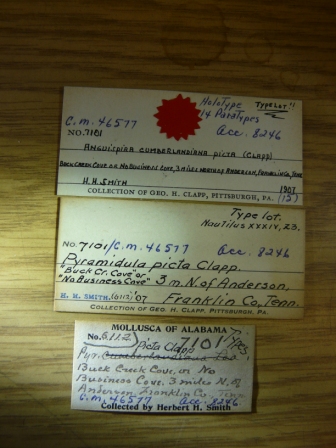 Holotype "Type Lot"
14 Paratypes
C.M. 46577 Acc. 8246
No. 7101
ANGUISPIRA CUMBERLANDIANA PICTA (CLAPP)
BUCK CREEK COVE OR NO BUSINESS COVE, 3 MILES NORTH OF ANDERSON, FRANKLIN CO., TENN.
H. H. SMITH 1907
COLLECTION OF GEO. H. CLAPP, PITTSBURGH, PA. (15)
Type lot.
Nautilus XXXIV, 23.
No. 7101/C.M. 46577 Acc. 8246
Pyramidula picta Clapp.
"Buck Cr. Cove" or
"No Business Cove" 3 m. N. of Anderson,
H. H. SMITH. 10/12/'07 Franklin Co, Tenn.
COLLECTION OF GEO. H. CLAPP, PITTSBURGH, PA.
MOLLUSCA OF ALABAMA
No. 5112 7101 Types
picta Clapp
Pyr. Cumberlandiana Lea
Buck Creek Cove, or No
Business Cove, 3 miles N. of
Anderson Franklin Co. Tenn
C.M. 46577 Acc. 8246
Collected by Herbert H. Smith